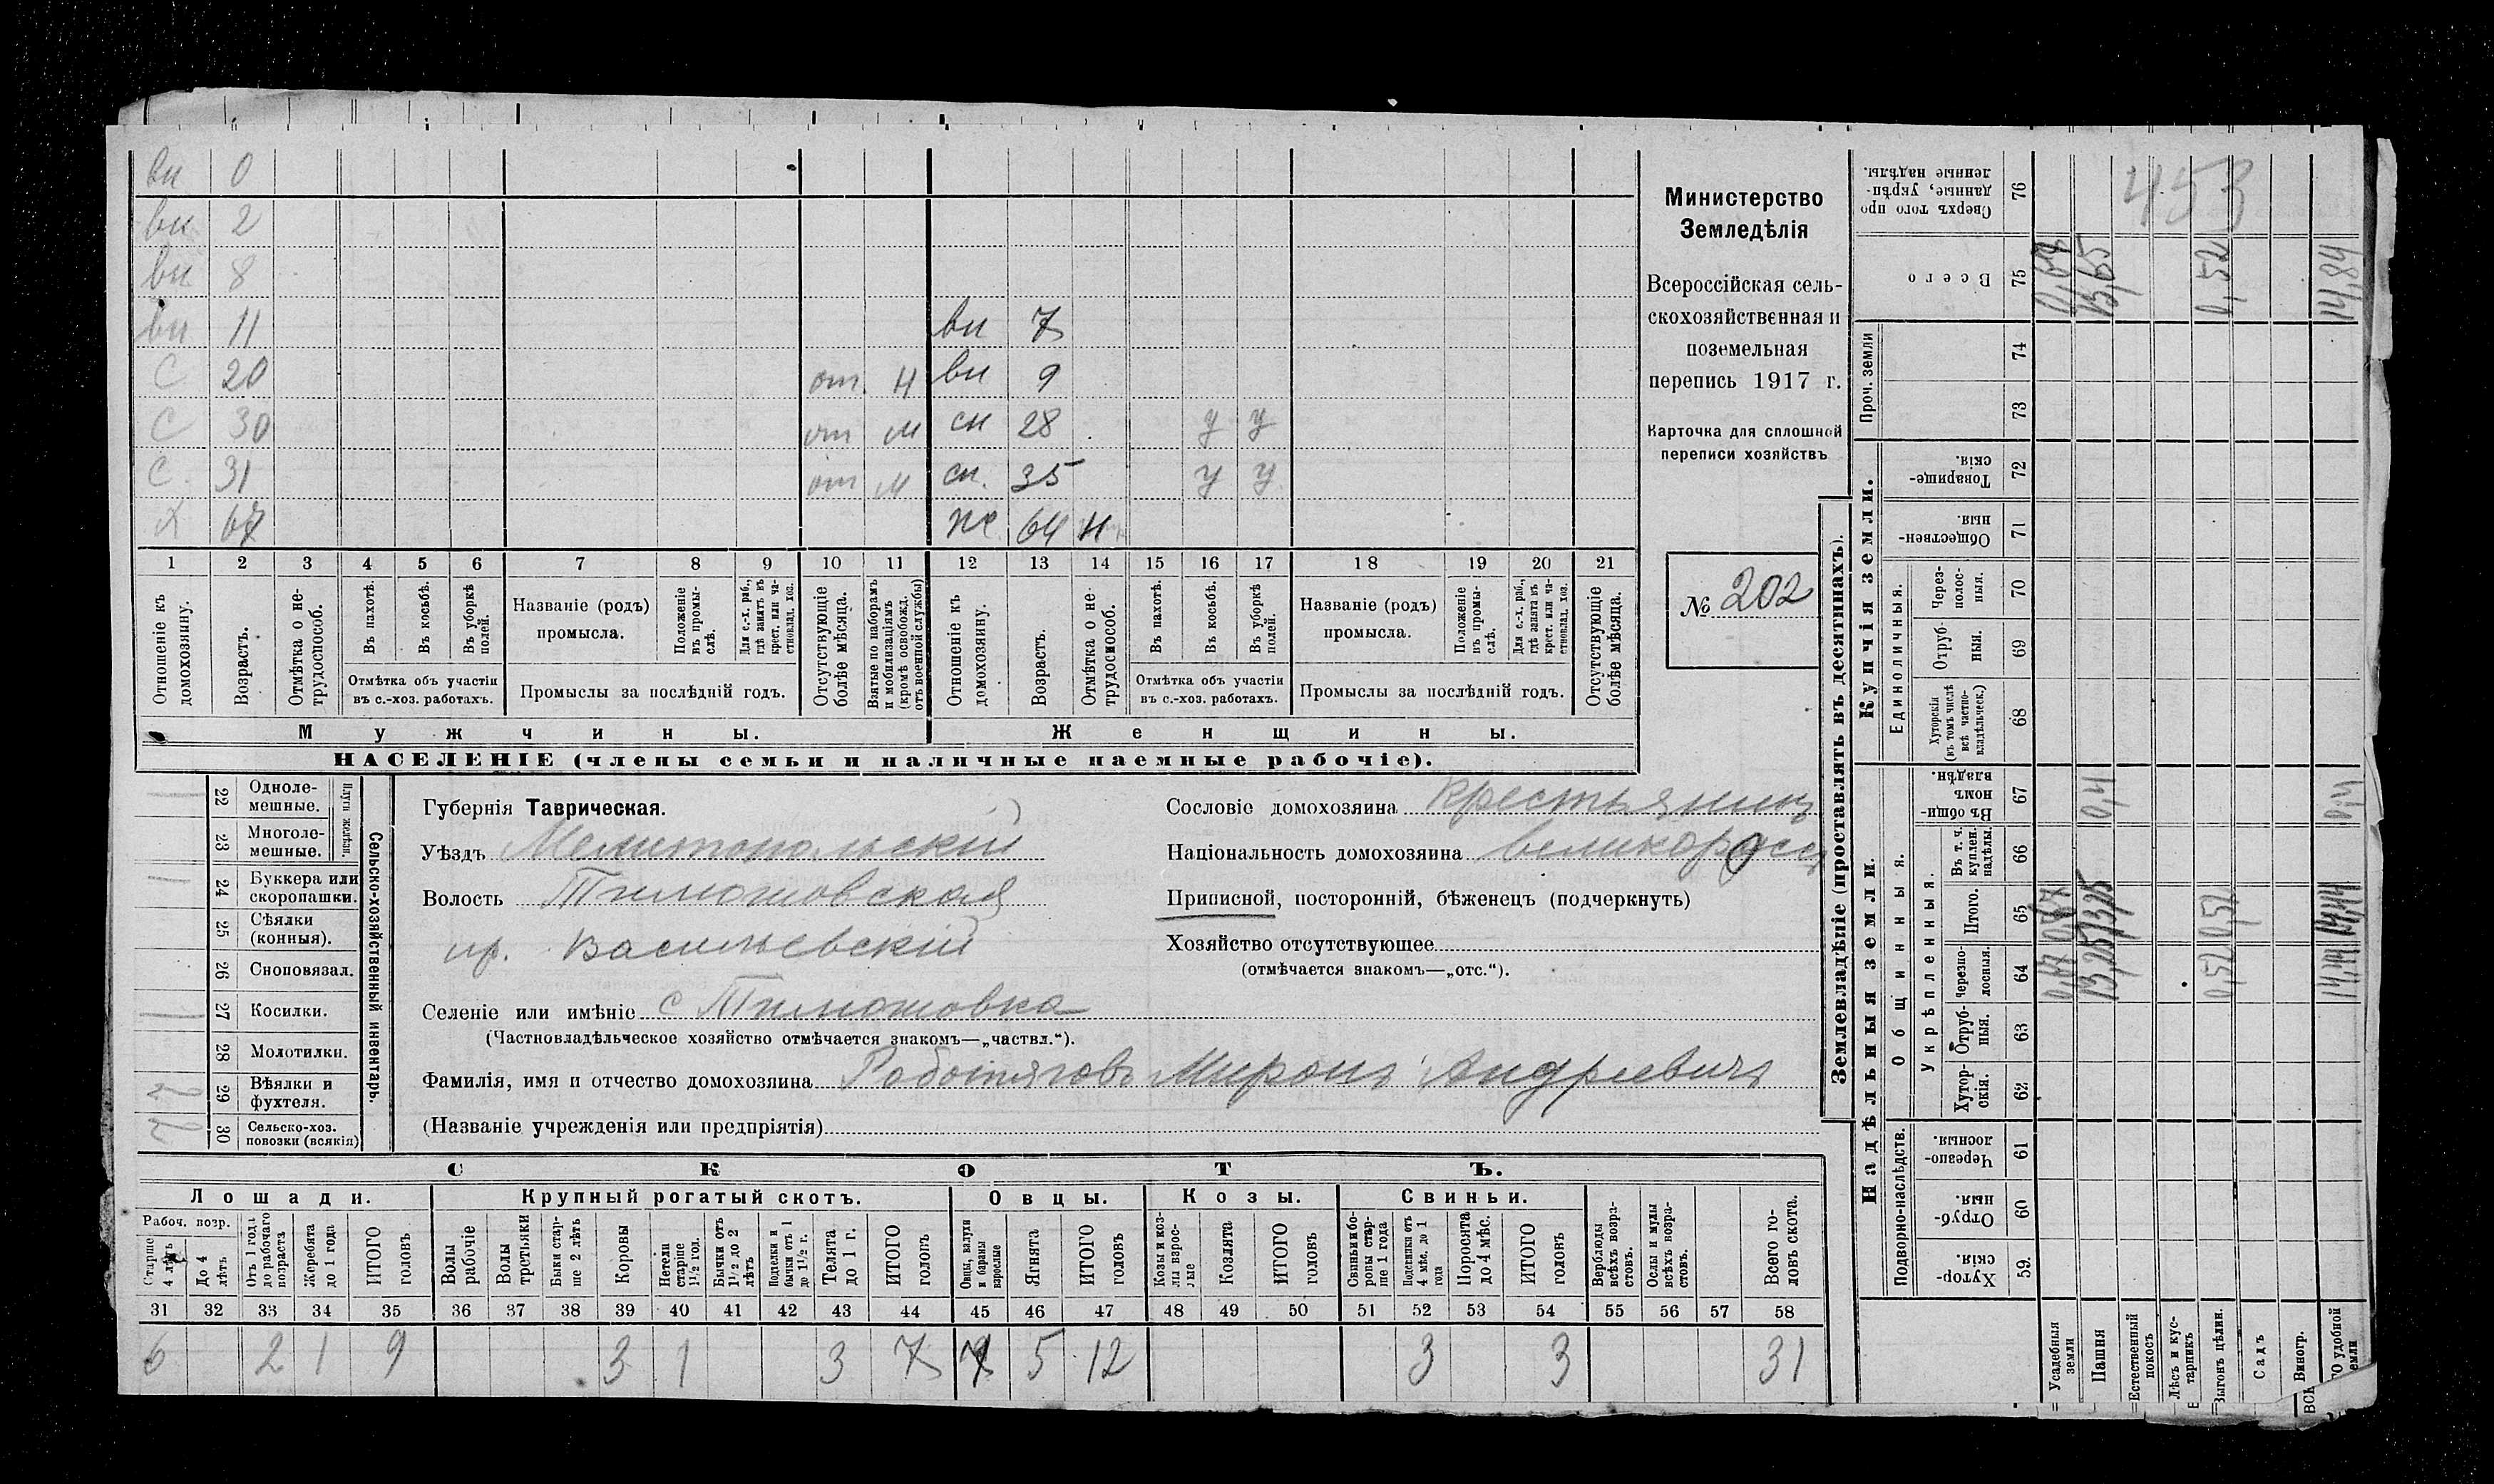 вн 0
вн 2
вн 8
вн 11 вн 7
С 20 от. Н вн 9
С 30 от М сн 28 у у
С. 31 от М сн. 35 у у
Х 67 же 64 н
1 2 3 4 5 6 7 8 9 10 11 12 13 14 15 16 17 18 19 20 21
Отношеніе къ домохозяину.
Возрастъ.
Отмѣтка о не-
трудоспособ.
Въ пахотѣ.
Въ косьбѣ.
Въ уборкѣ полей.
Отмѣтка объ участіи
въ с.-хоз. работахъ.
Названіе (родъ)
промысла.
Положеніе въ промы-
слѣ.
Для с.-х. раб.,
гдѣ занятъ въ
крест. или ча-
стновлад. хоз.
Промыслы за послѣдній годъ.
Отсутствующіе
болѣе мѣсяца.
Взятые по наборамъ
и мобилизаціямъ
(кромѣ освобожд.
отъ военной службы)
Отношеніе къ
домохозяину.
Возрастъ.
Отмѣтка о не-
трудоспособ.
Въ пахотѣ.
Въ косьбѣ.
Въ уборкѣ
полей.
Отмѣтка объ участіи
въ с.-хоз. работахъ.
Названіе (родъ)
промысла.
Положеніе
въ промы-
слѣ.
Для с.-х. раб.,
гдѣ занята въ
крест. или ча-
стновлад. хоз.
Промыслы за послѣдній годъ.
Отсутствующіе
болѣе мѣсяца.
Мужчины. Женщины.
НАСЕЛЕНІЕ (члены семьи и наличные наемные рабочіе).
Министерство
Земледѣлія
Всероссійская сель-
скохозяйственная и
поземельная
перепись 1917 г.
Карточка для сплошной
переписи хозяйствъ
№ 202
Сельско-хозяйственный инвентарь.
Плуги желѣзн.
22 Одноле-
мешные.
23 Многоле-
мешные.
24 Буккера или
скоропашки.
25 Сѣялки
(конныя).
26 Сноповязал.
27 Косилки.
28 Молотилки.
29 Вѣялки и
фухтеля.
30 Сельско-хоз.
повозки (всякія)
Губернія Таврическая.
Уѣздъ Мелитопольскій
Волость Тимошовская
пр. Васильевскій
Селеніе или имѣніе с Тимошовка
(Частновладѣльческое хозяйство отмѣчается знакомъ—„частвл.“).
Фамилія, имя и отчество домохозяина Работяговъ Миронъ Андреевичъ
(Названіе учрежденія или предпріятія)
Сословіе домохозяина Крестьянинъ
Національность домохозяина великороссъ
Приписной, посторонній, бѣженецъ (подчеркнуть)
Хозяйство отсутствующее
(отмѣчается знакомъ—„отс.“).
СКОТЪ.
Лошади. Крупный рогатый скотъ. Овцы. Козы. Свиньи.
Рабоч. возр.
Старше
4 лѣтъ
До 4
лѣтъ
Отъ 1 года
до рабочаго
возраста
Жеребята
до 1 года
ИТОГО
головъ
Волы
рабочіе
Волы
третьяки
Быки стар-
ше 2 лѣтъ
Коровы
Нетели
старше
1½ год.
Бычки отъ
1½ до 2
лѣтъ
Подтелки и
бычки отъ 1
до 1½ г.
Телята
до 1 г.
ИТОГО
головъ
Овцы, валухи
и бараны
взрослые
Ягнята
ИТОГО
головъ
Козы и коз-
лы взрос-
лые
Козлята
ИТОГО
головъ
Свиньи и бо-
ровы стар-
ше 1 года
Подсвинки отъ
4 мѣс. до 1
года
Поросята
до 4 мѣс.
ИТОГО
головъ
Верблюды
всѣхъ возра-
стовъ.
Ослы и мулы
всѣхъ возра-
стовъ.
Всего го-
ловъ скота.
31 32 33 34 35 36 37 38 39 40 41 42 43 44 45 46 47 48 49 50 51 52 53 54 55 56 57 58
6 2 1 9 3 1 3 7 7 5 12 3 3 31
Землевладѣніе (проставлять въ десятинахъ).
Надѣльныя земли. Купчія земли. Проч. земли
Подворно-наслѣдств.
Общинныя.
Укрѣпленныя.
Единоличныя.
Хутор-
скія. 59.
Отруб-
ныя. 60
Черезпо-
лосныя. 61
Хутор-
скія. 62
Отруб-
ныя. 63
Черезпо-
лосныя. 64
Итого. 65
Въ т. ч.
куплен.
надѣлы. 66
Въ общи-
номъ
владѣн. 67
Хуторскія
(въ томъ числѣ
всѣ частно-
владѣльческ.) 68
Отруб-
ныя. 69
Через-
полос-
ныя. 70
Обществен-
ныя. 71
Товарище-
скія. 72
73
74
Всего 75
Сверхъ того про
данные, укрѣп-
ленные надѣлы. 76
453
Усадебныя
земли
Пашня 13,25 0,11
Естественный
покосъ
Лѣсъ и кус-
тарникъ
Выгонъ цѣлин. 0,52 0,52 0,52
Садъ
Виногр.
ГО удобной
земли 14,84